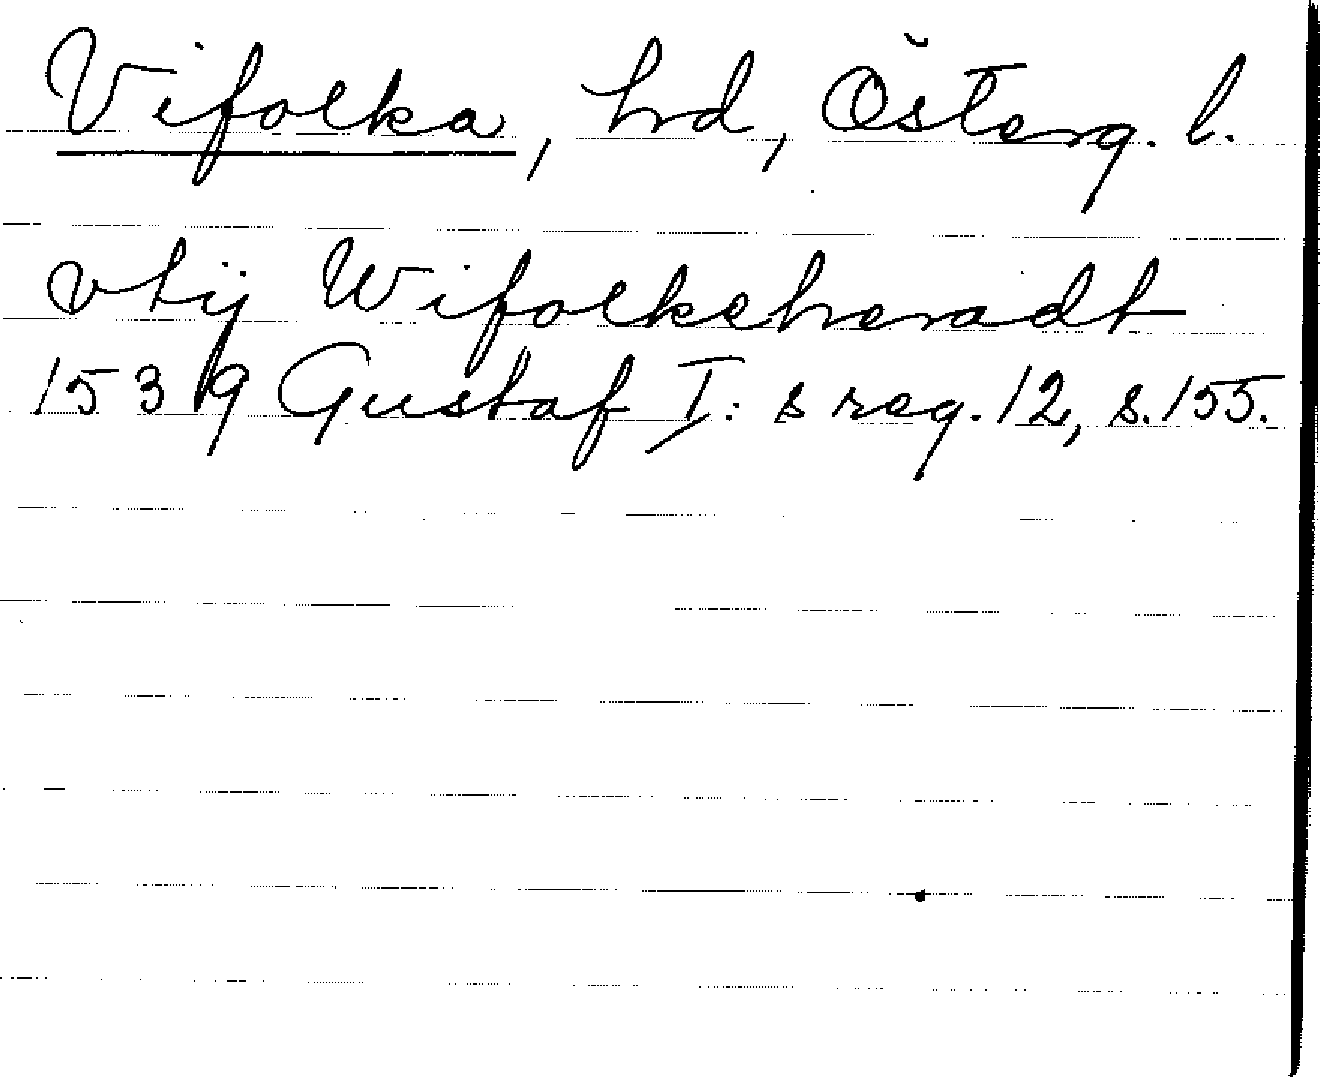 Vifolka, hd, Österg. l.
vtij Wifolkeheradt
1539 Gustaf I:s reg. 12, s. 155.